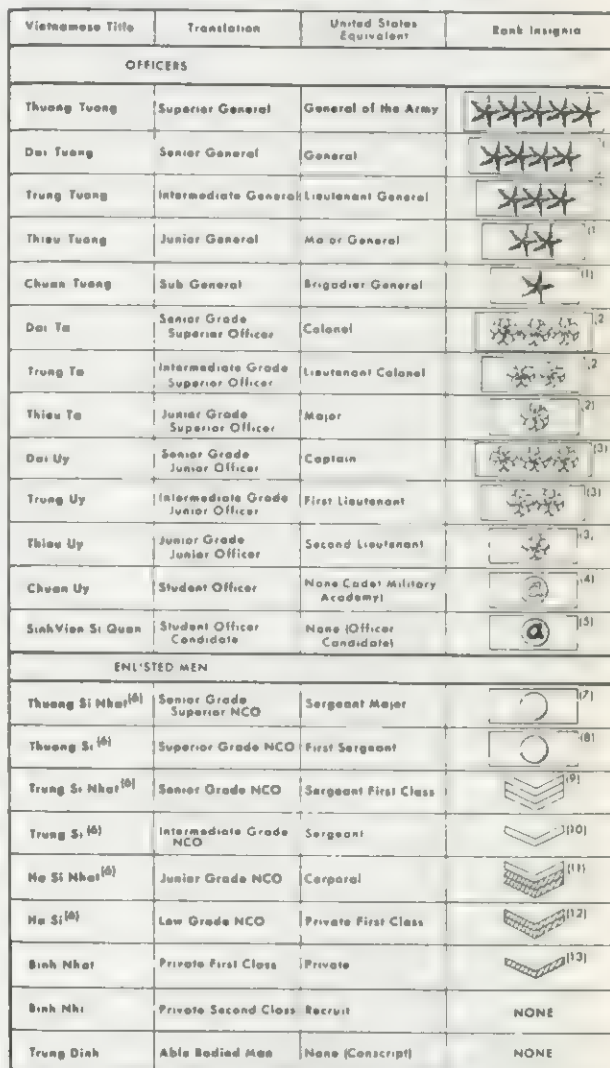 Vietnamese Title Translation United States Equivalent Rank Insignia
OFFICERS
Thuong Tuong Superior General General of the Army
Dai Tuong Senior General General
Trung Tuong Intermediate General Lieutenant General
Thieu Tuong Junior General Major General (1
Chuan Tuong Sub General Brigadier General (1)
Dai Ta Senior Grade Superior Officer Colonel 2
Trung Ta Intermediate Grade Superior Officer Lieutenant Colonel 2
Thieu Ta Junior Grade Superior Officer Major (2)
Dai Uy Senior Grade Junior Officer Captain (3)
Trung Uy Intermediate Grade Junior Officer First Lieutenant (3)
Thieu Uy Junior Grade Junior Officer Second Lieutenant (3)
Chuan Uy Student Officer None Cadet Military Academy) (4)
Sinh Vien Si Quan Student Officer Candidate None (Officer Candidate) a (5)
ENLISTED MEN
Thuong Si Nhat(6) Senior Grade Superior NCO Sergeant Major (7)
Thuong Si(6) Superior Grade NCO First Sergeant (8)
Trung Si Nhat(6) Senior Grade NCO Sergeant First Class (9)
Trung Si(6) Intermediate Grade NCO Sergeant (10)
Ha Si Nhat(6) Junior Grade NCO Corporal (11)
Ha Si(6) Low Grade NCO Private First Class (12)
Binh Nhat Private First Class Private (13)
Binh Nhi Private Second Class Recruit NONE
Trung Dinh Able Bodied Man None (Conscript) NONE